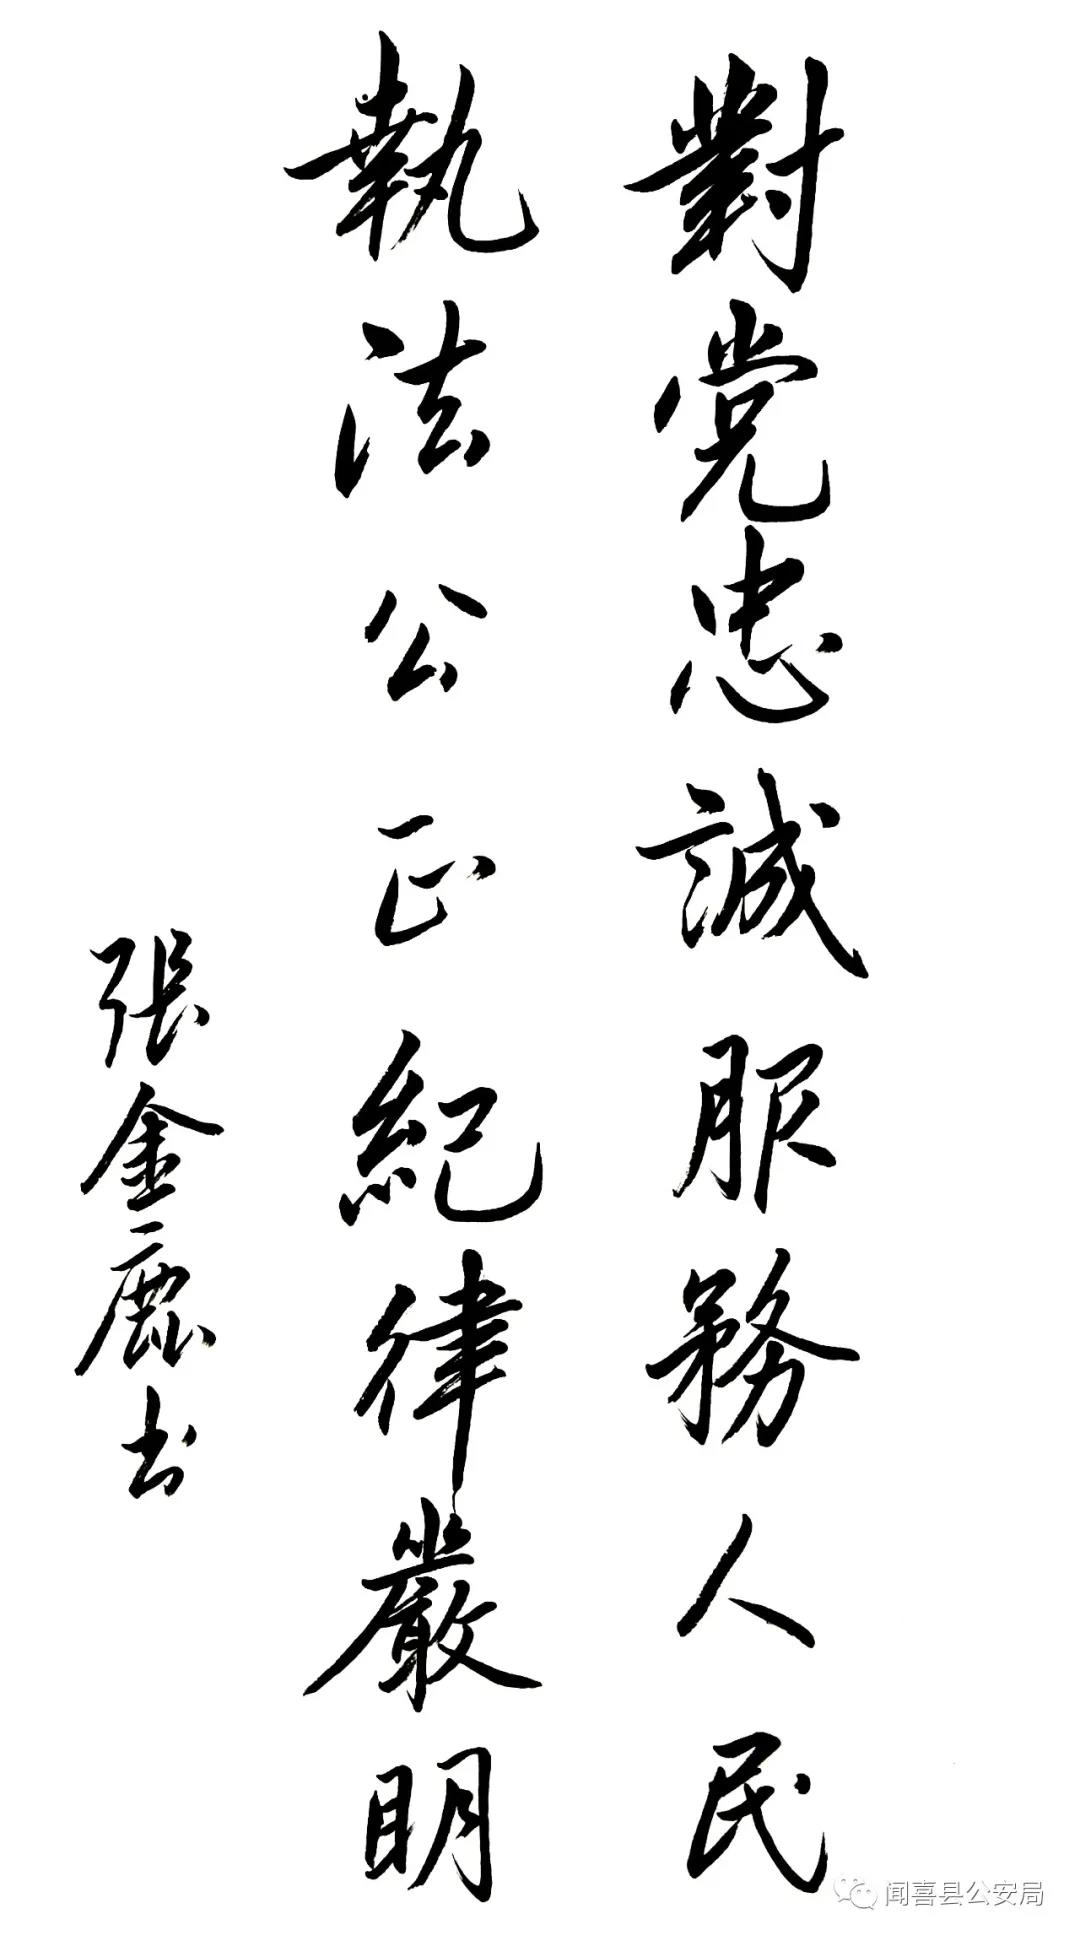 對党忠誠服務人民
執法公正紀律嚴明
張金鹿书
闻喜县公安局